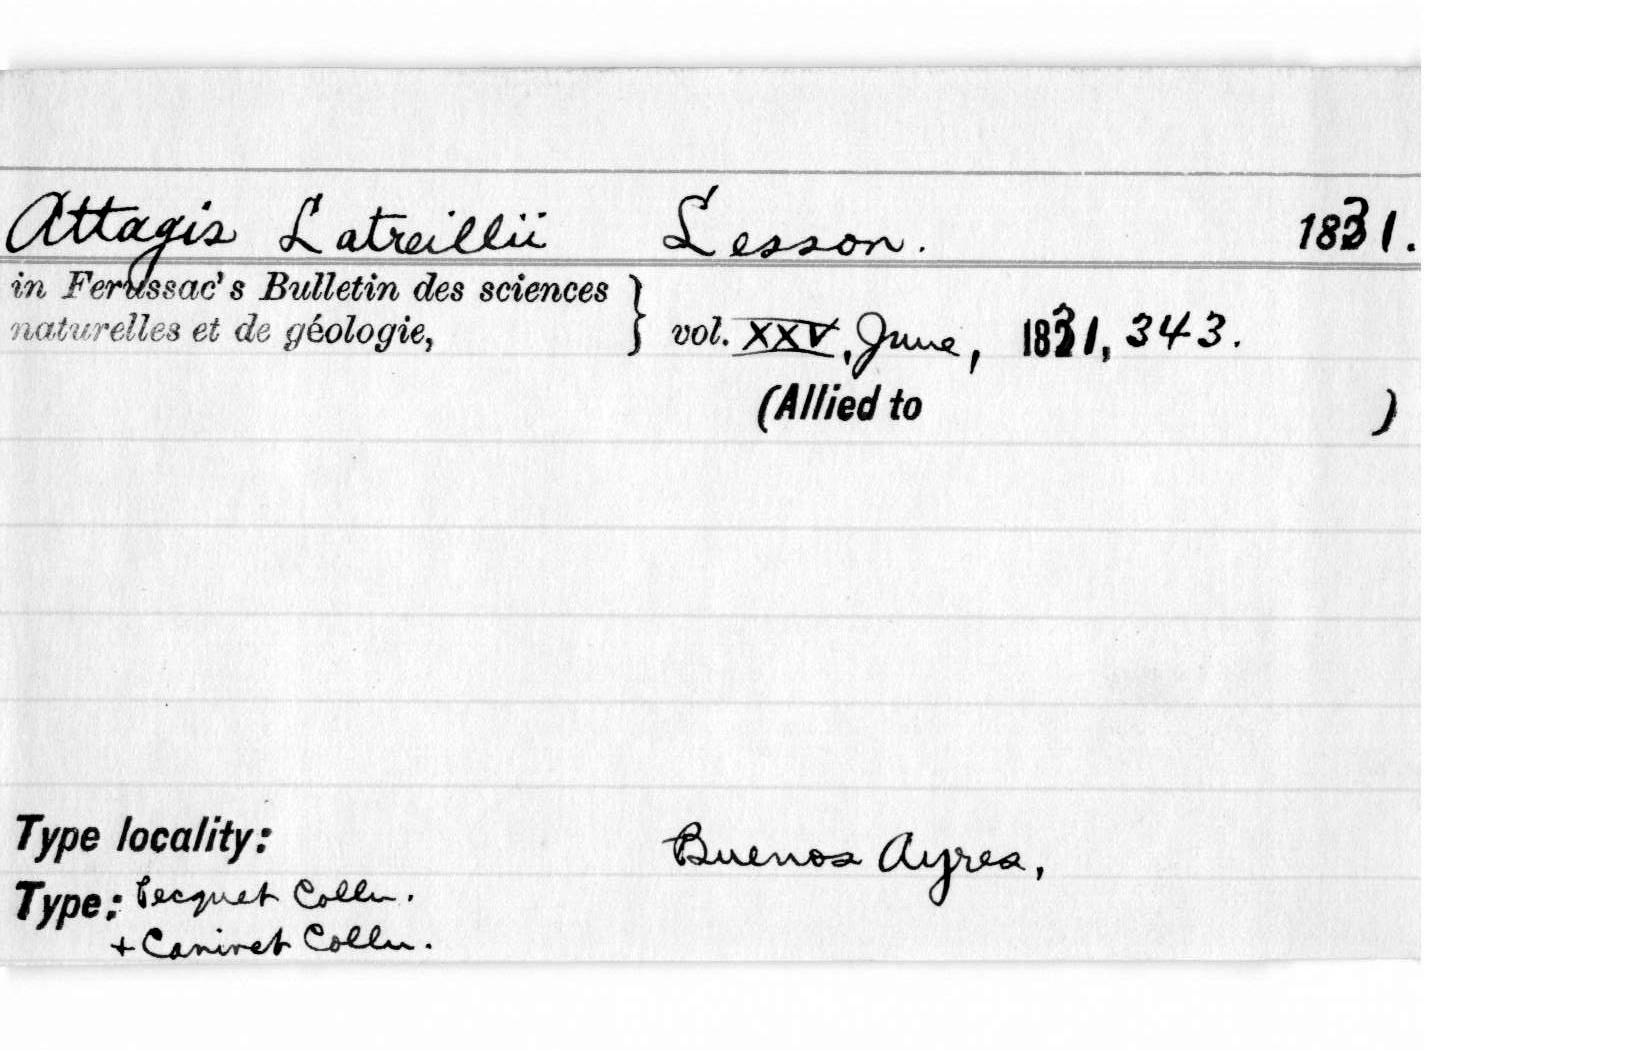 Attagis Latreillii Lesson. 1831.
in Ferussac's Bulletin des sciences
naturelles et de géologie, } vol. XXV, June, 1831, 343.
(Allied to )
Type locality: Buenos Ayres,
Type: Becquet Colln.
+ Canivet Colln.